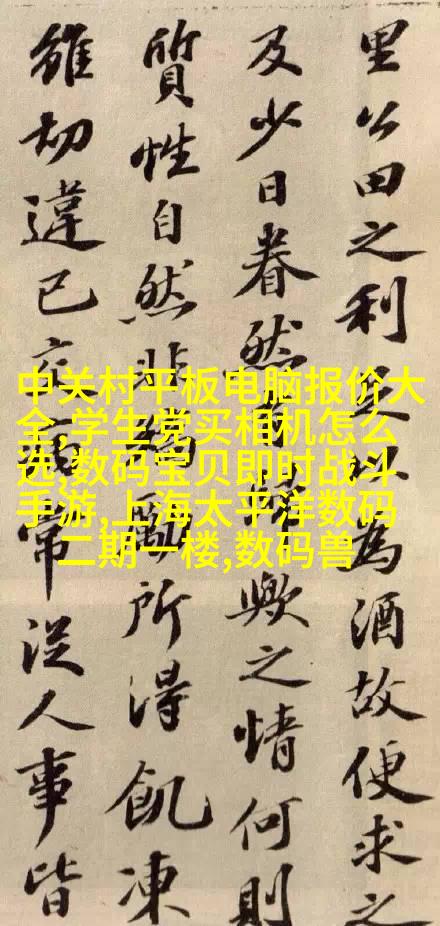 里公田之利足以為酒故便求之
及少日眷然歸歟之情何則
質性自然非矯勵所得飢凍
雖切違已交病常從人事皆
中关村平板电脑报价大
全,学生党买相机怎么
选,数码宝贝即时战斗
手游,上海太平洋数码
二期一楼,数码兽